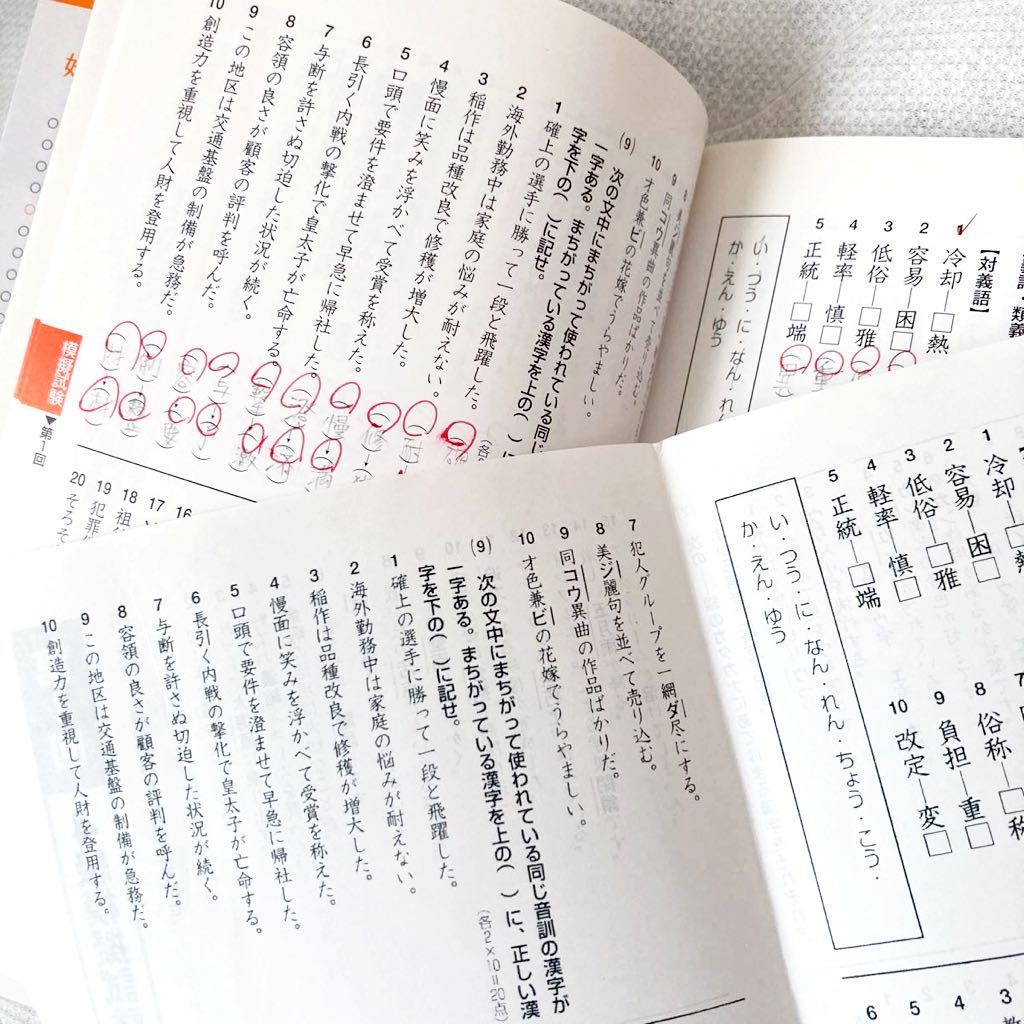 【対義語】
冷却―□熱
2 容易―困□
3 低俗―□雅
4 軽率―慎□
5 正統―□端
い・つう・に・なん・れん
か・えん・ゆう
9 同コウ異曲の作品ばかりだ。
10 才色兼ビの花嫁でうらやましい。
(9) 次の文中にまちがって使われている同じ
一字ある。まちがっている漢字を上の( )に
字を下の( )に記せ。
1 確上の選手に勝って一段と飛躍した。
2 海外勤務中は家庭の悩みが耐えない。
3 稲作は品種改良で修穫が増大した。
4 慢面に笑みを浮かべて受賞を称えた。
5 口頭で要件を澄ませて早急に帰社した。
6 長引く内戦の撃化で皇太子が亡命する。
7 与断を許さぬ切迫した状況が続く。
8 容領の良さが顧客の評判を呼んだ。
9 この地区は交通基盤の制備が急務だ。
10 創造力を重視して人財を登用する。
模擬試験
▼第1回
16
17
18 祖
19 犯罪
20 そろそ
1 冷却
2 容易―困□
3 低俗―□雅
4 軽率―慎□
5 正統―□端
い・つう・に・なん・れん・ちょう・こう・
か・えん・ゆう
8 俗称―□称
9 負担―重□
10 改定―変□
3
4
5
6
7 犯人グループを一網ダ尽にする。
8 美ジ麗句を並べて売り込む。
9 同コウ異曲の作品ばかりだ。
10 才色兼ビの花嫁でうらやましい。
(9) 次の文中にまちがって使われている同じ音訓の漢字が
一字ある。まちがっている漢字を上の( )に、正しい漢
字を下の( )に記せ。
(各2×10=20点)
1 確上の選手に勝って一段と飛躍した。
2 海外勤務中は家庭の悩みが耐えない。
3 稲作は品種改良で修穫が増大した。
4 慢面に笑みを浮かべて受賞を称えた。
5 口頭で要件を澄ませて早急に帰社した。
6 長引く内戦の撃化で皇太子が亡命する。
7 与断を許さぬ切迫した状況が続く。
8 容領の良さが顧客の評判を呼んだ。
9 この地区は交通基盤の制備が急務だ。
10 創造力を重視して人財を登用する。